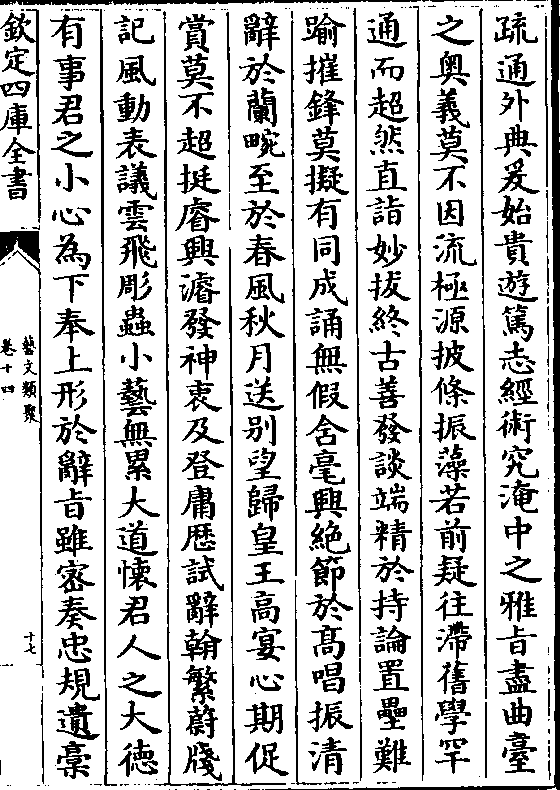 疏通外典爰始貴遊篤志經術究淹中之雅旨盡曲臺
之奥義莫不因流極源披條振藻若前疑往滯舊學罕
通而超然直詣妙拔終古善發談端精於持論置壘難
踰摧鋒莫擬有同成誦無假含毫興絶節於髙唱振清
辭於蘭畹至於春風秋月送别望歸皇王高宴心期促
賞莫不超挺睿興濬發神衷及登庸歴試辭翰繁蔚牋
記風動表議雲飛彫蟲小藝無累大道懷君人之大德
有事君之小心為下奉上形於辭旨雖密奏忠規遺稾
欽定四庫全書
藝文類聚
卷十四
十七